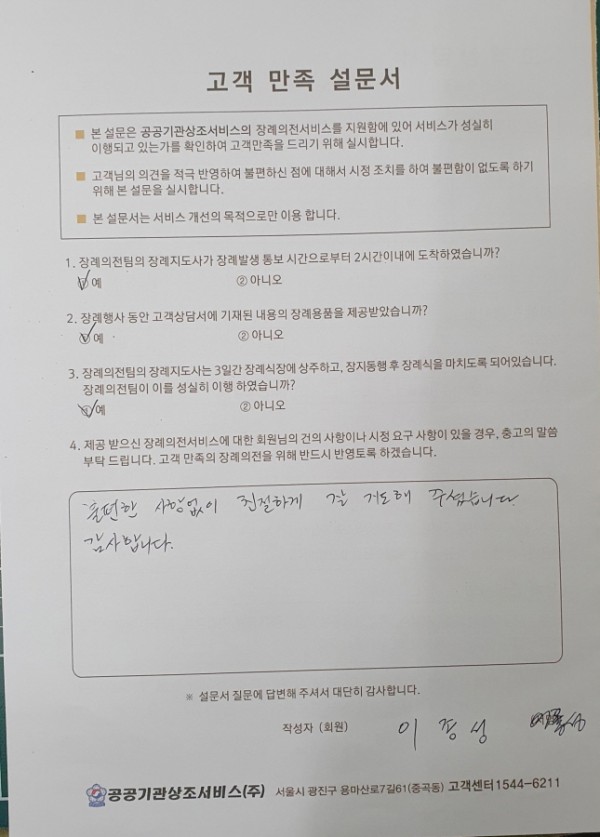 고객 만족 설문서
■ 본 설문은 공공기관상조서비스의 장례의전서비스를 지원함에 있어 서비스가 성실히
이행되고 있는가를 확인하여 고객만족을 드리기 위해 실시합니다.
■ 고객님의 의견을 적극 반영하여 불편하신 점에 대해서 시정 조치를 하여 불편함이 없도록 하기
위해 본 설문을 실시합니다.
■ 본 설문서는 서비스 개선의 목적으로만 이용 합니다.
1. 장례의전팀의 장례지도사가 장례발생 통보 시간으로부터 2시간이내에 도착하였습니까?
① 예 ② 아니오
2. 장례행사 동안 고객상담서에 기재된 내용의 장례용품을 제공받았습니까?
① 예 ② 아니오
3. 장례의전팀의 장례지도사는 3일간 장례식장에 상주하고, 장지동행 후 장례식을 마치도록 되어있습니다.
장례의전팀이 이를 성실히 이행 하였습니까?
① 예 ② 아니오
4. 제공 받으신 장례의전서비스에 대한 회원님의 건의 사항이나 시정 요구 사항이 있을 경우, 충고의 말씀
부탁 드립니다. 고객 만족의 장례의전을 위해 반드시 반영토록 하겠습니다.
불편한 사항없이 친절하게 잘 지도해 주셨습니다.
감사합니다.
※ 설문서 질문에 답변해 주셔서 대단히 감사합니다.
작성자 (회원) 이
공공기관상조서비스(주) 서울시 광진구 용마산로7길61(중곡동) 고객센터1544-6211